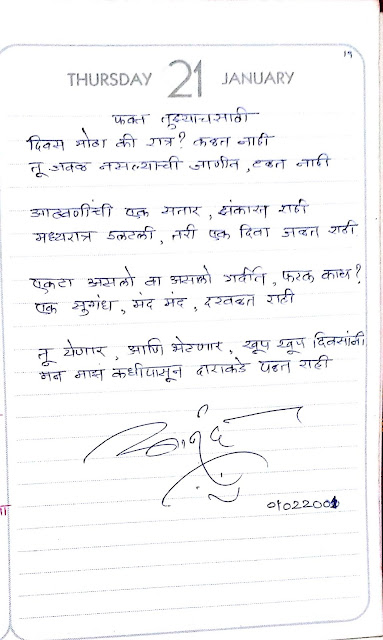 19
THURSDAY 21 JANUARY
फक्त तुझ्याचसाठी
दिवस मोठा की रात्र? कळत नाही
तू जवळ नसल्याची जाणीव, टळत नाही
आठवणींची एक सतार, झंकारत राही
मध्यरात्र उलटली, तरी एक दिवा जळत राही
एकटा असलो वा असलो गर्दीत, फरक काय?
एक सुगंध, मंद मंद, दरवळत राही
तू येणार, आणि भेटणार, खूप खूप दिवसांनी
मन माझं कधीपासून दाराकडे पळत राही
01022001